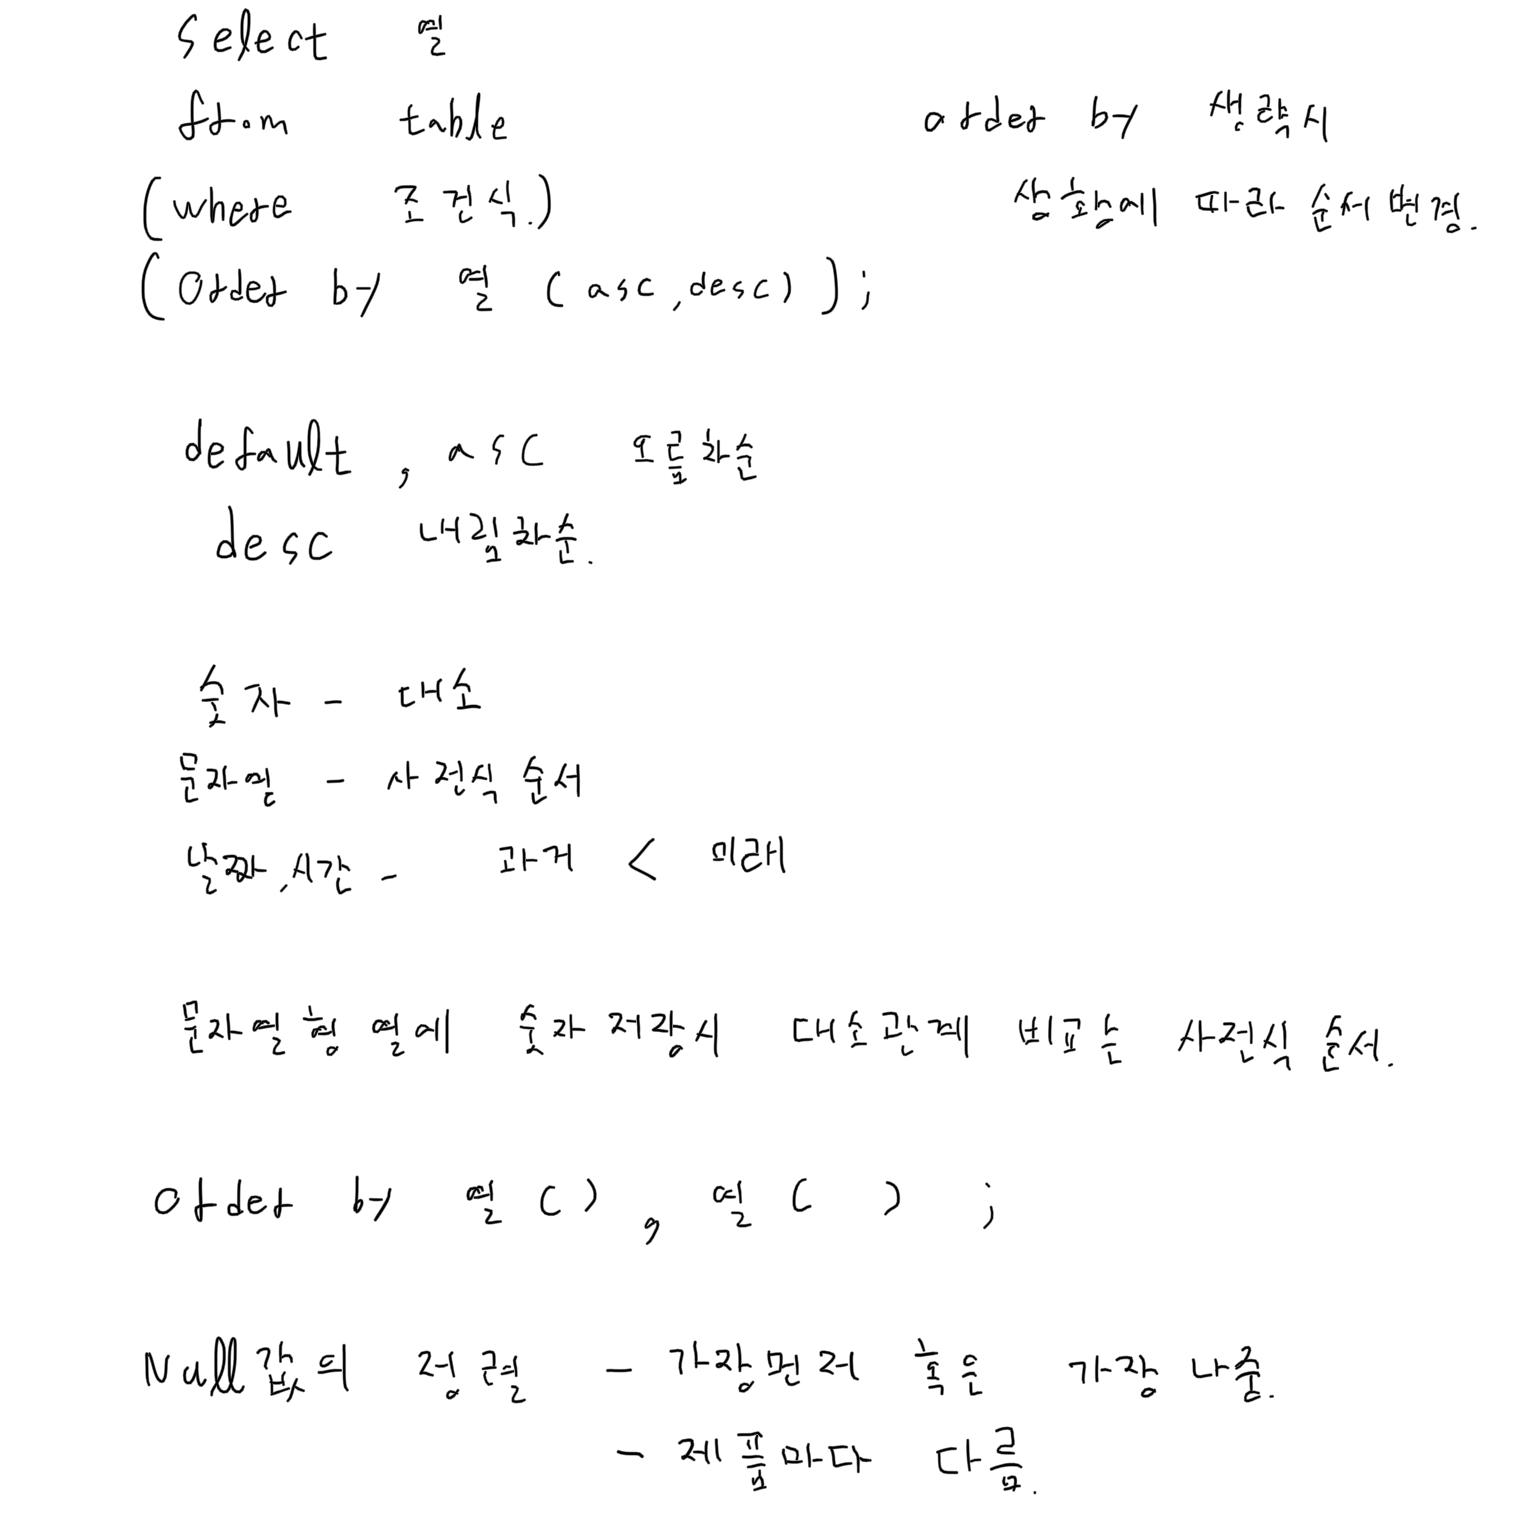 select 열
from table
(where 조건식.)
(order by 열 (asc, desc));
order by 생략시
상황에 따라 순서변경.
default, asc 오름차순
desc 내림차순.
숫자 - 대소
문자열 - 사전식 순서
날짜,시간 - 과거 < 미래
문자열형 열에 숫자 저장시 대소관계 비교는 사전식 순서.
order by 열(), 열( ) ;
Null값의 정렬 - 가장먼저 혹은 가장 나중.
- 제품마다 다름.